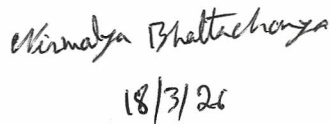 Nirmalya Bhattacharya
18/3/26